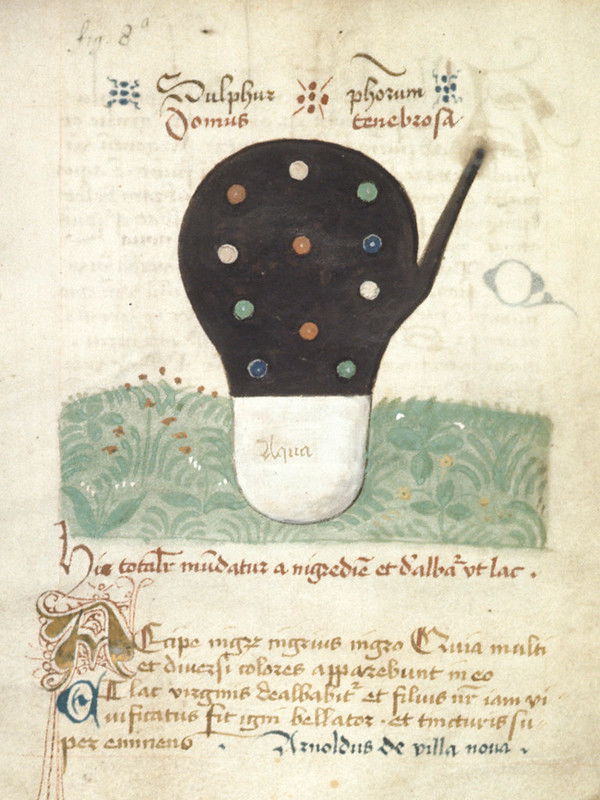 fig. 8ª
Sulphur phōrum
Domus tenebrosa
Aqua
Hic totalr mūdatur a nigrediē et d'albat᷑ vt lac .
ACcipe nigrᷓ nigrius nigro Quia multi
et diversi colores apparebunt in eo
lac virginis dealbabit᷑ et filius nr̄ iam vi
uificatus fit igni bellator · et tincturis su
per eminens . Arnoldus de villa nova .